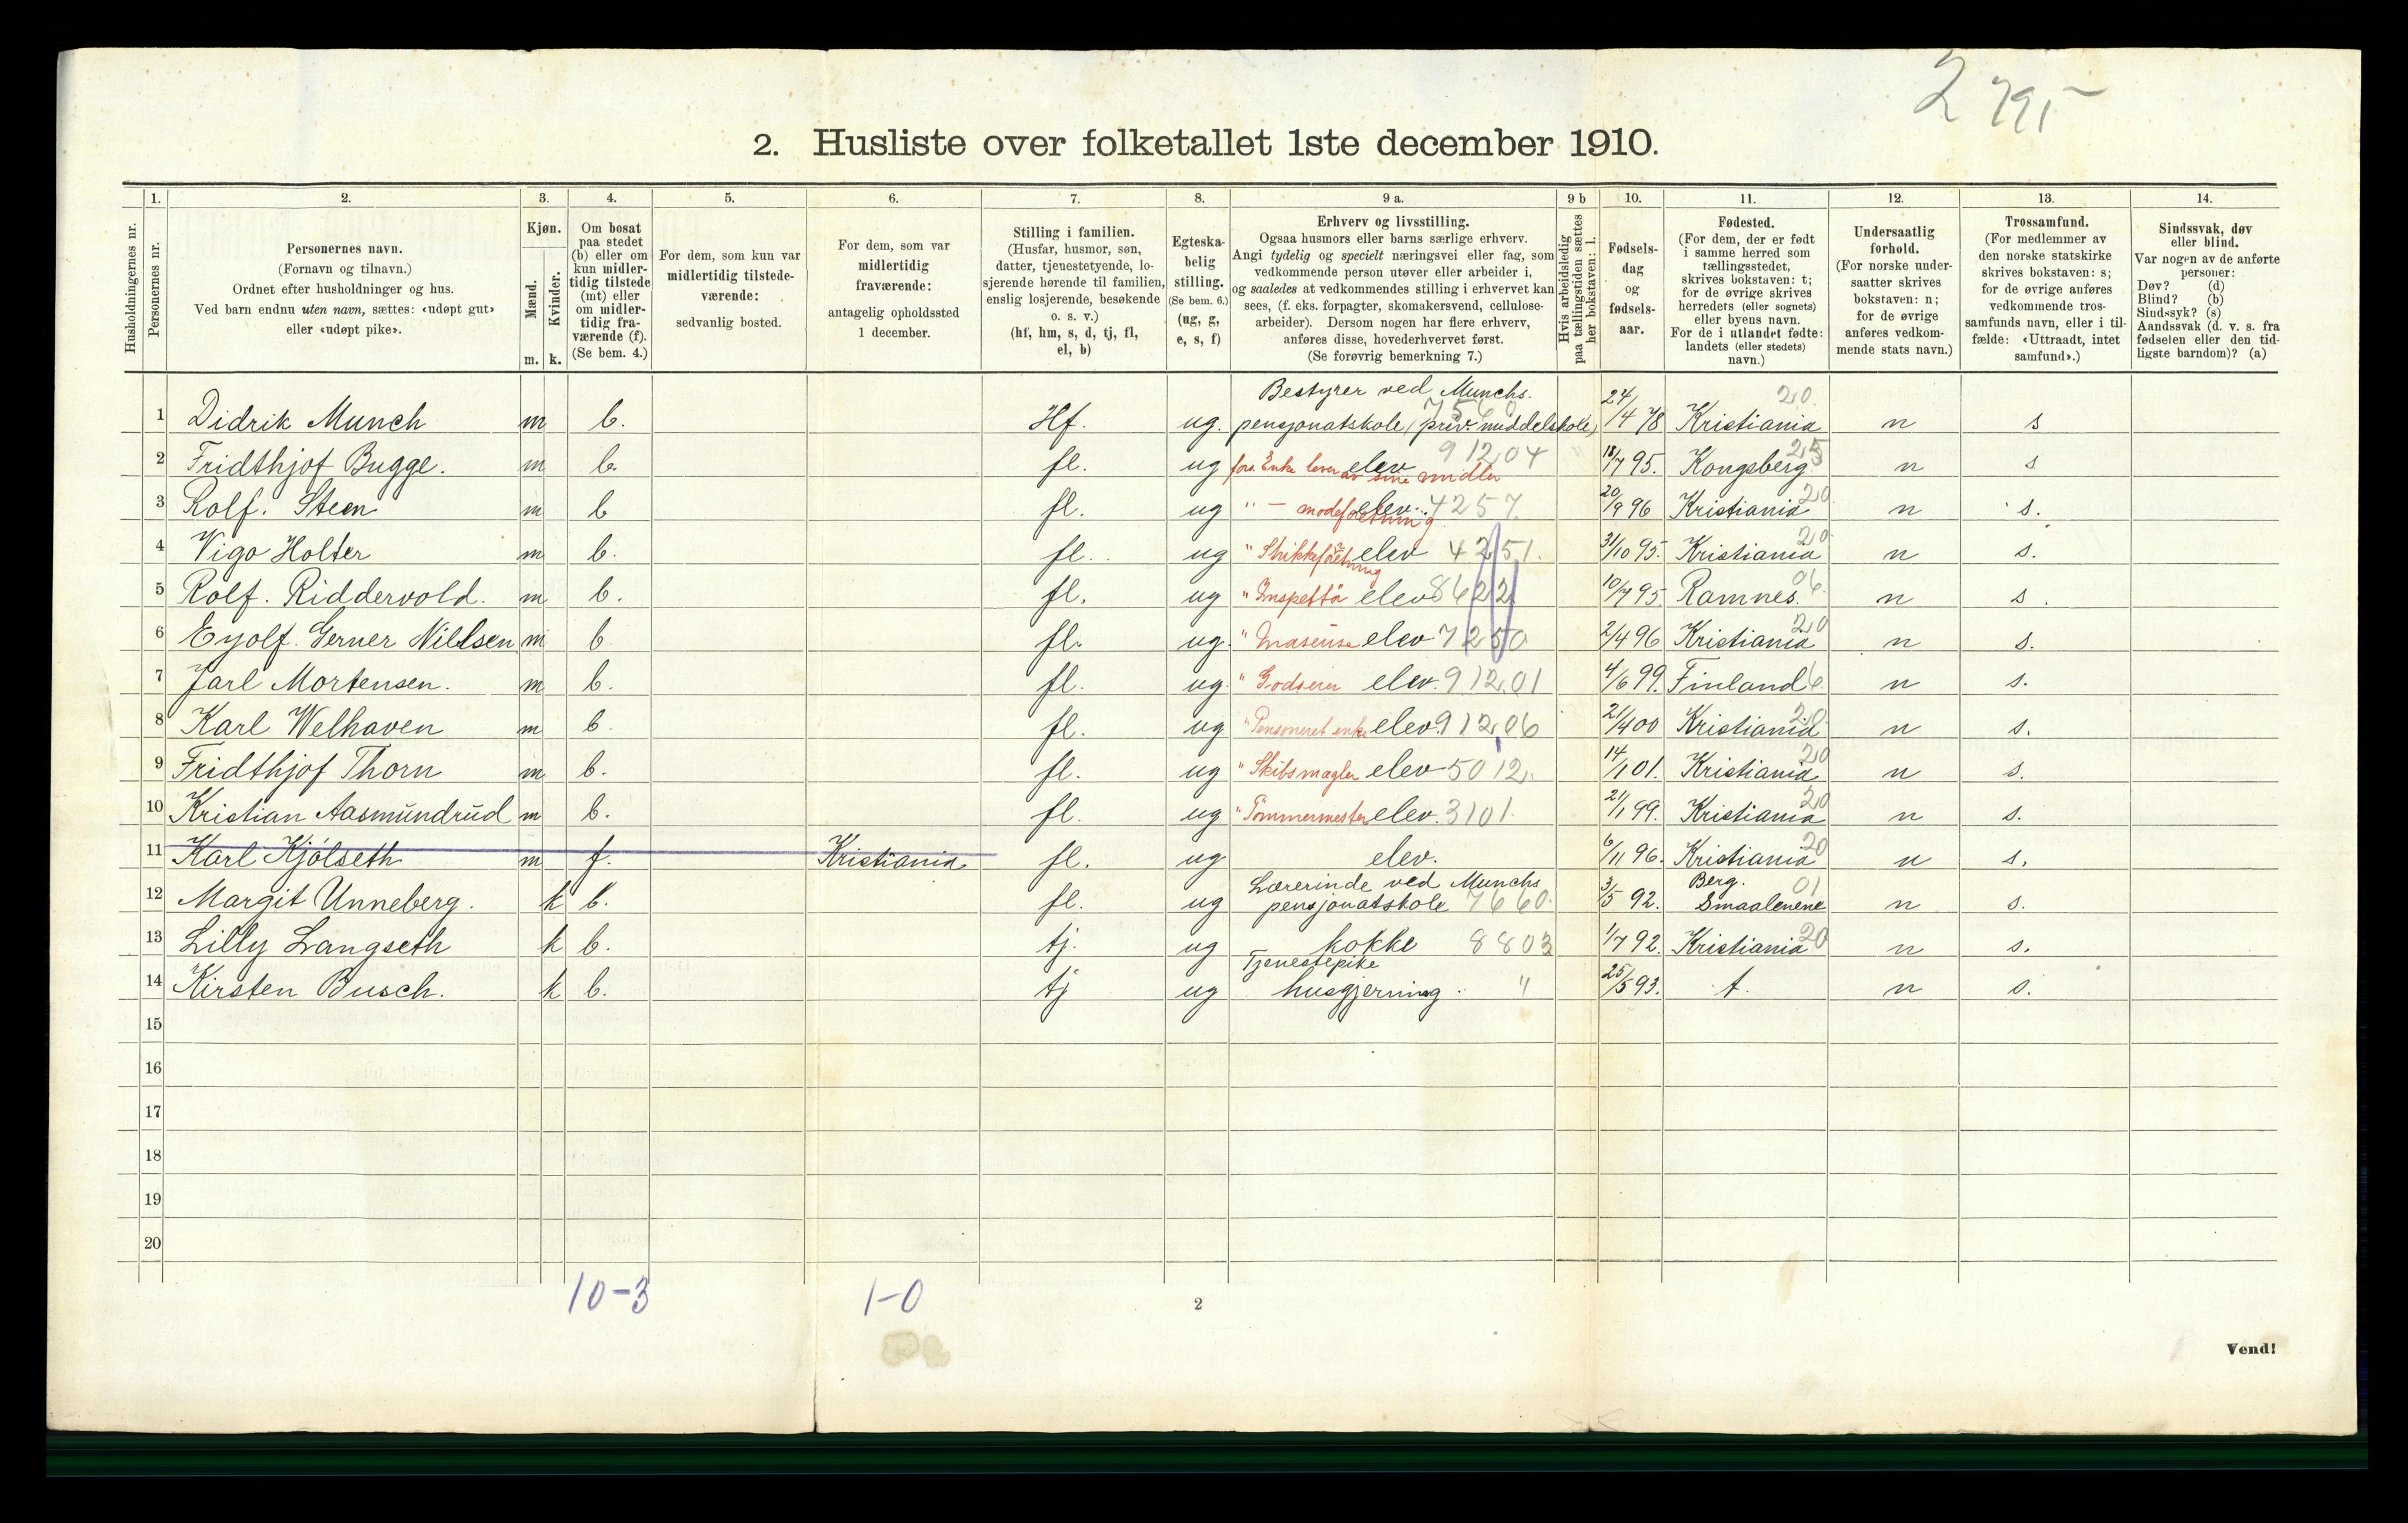 2 791-
2. Husliste over folketallet 1ste december 1910.
Husholdningernes nr.
1. Personernes nr.
2. Personernes navn.
(Fornavn og tilnavn.)
Ordnet efter husholdninger og hus.
Ved barn endnu uten navn, sættes: «udøpt gut»
eller «udøpt pike».
3. Kjøn.
Mænd. Kvinder.
m. k.
4. Om bosat
paa stedet
(b) eller om
kun midler-
tidig tilstede
(mt) eller
om midler-
tidig fra-
værende (f).
(Se bem. 4.)
5. For dem, som kun var
midlertidig tilstede-
værende:
sedvanlig bosted.
6. For dem, som var
midlertidig
fraværende:
antagelig opholdssted
1 december.
7. Stilling i familien.
(Husfar, husmor, søn,
datter, tjenestetyende, lo-
sjerende hørende til familien,
enslig losjerende, besøkende
o. s. v.)
(hf, hm, s, d, tj, fl,
el, b)
8. Egteska-
belig
stilling.
(Se bem. 6.)
(ug, g,
e, s, f)
9 a. Erhverv og livsstilling.
Ogsaa husmors eller barns særlige erhverv.
Angi tydelig og specielt næringsvei eller fag, som
vedkommende person utøver eller arbeider i,
og saaledes at vedkommendes stilling i erhvervet kan
sees, (f. eks. forpagter, skomakersvend, cellulose-
arbeider). Dersom nogen har flere erhverv,
anføres disse, hovederhvervet først.
(Se forøvrig bemerkning 7.)
9 b Hvis arbeidsledig
paa tællingstiden sættes
her bokstaven: l.
10. Fødsels-
dag
og
fødsels-
aar.
11. Fødested.
(For dem, der er født
i samme herred som
tællingsstedet,
skrives bokstaven: t;
for de øvrige skrives
herredets (eller sognets)
eller byens navn.
For de i utlandet fødte:
landets (eller stedets)
navn.)
12. Undersaatlig
forhold.
(For norske under-
saatter skrives
bokstaven: n;
for de øvrige
anføres vedkom-
mende stats navn.)
13. Trossamfund.
(For medlemmer av
den norske statskirke
skrives bokstaven: s;
for de øvrige anføres
vedkommende tros-
samfunds navn, eller i til-
fælde: «Uttraadt, intet
samfund».)
14. Sindssvak, døv
eller blind.
Var nogen av de anførte
personer:
Døv? (d)
Blind? (b)
Sindssyk? (s)
Aandssvak (d. v. s. fra
fødselen eller den tid-
ligste barndom)? (a)
Bestyrer ved Munchs. 20.
1 Didrik Munch m b. Hf. ug. pensjonatskole (priv. middelskole) 7560 24/4 78 Kristiania n s
2 Fridthjof Bugge. m b. fl. ug fors. Enke lever av sine midler elev 91204 18/7 95. Kongsberg 25 n s
3 Rolf. Steen m b fl. ug " — modeforretning elev. 4257. 20/9 96 Kristiania 20. n s.
4 Vigo Holter m b. fl. ug " elev 4251. 31/10 95. Kristiania 20 n s.
5 Rolf. Riddervold. m b. fl. ug " Inspektø elev 8622 10/7 95. Ramnes. 06. n s.
6 Eyolf. Gerner Nillsen m b. fl. ug. " Maseuse elev 7250 2/4 96 Kristiania 20 n s.
7 Jarl Mortensen. m b. fl. ug. " Godseier elev. 91201 4/6 99. Finland 6. n s.
8 Karl Welhaven m b. fl. ug " Pensoneret enke elev. 91206 21/4 00 Kristiania 20. n s.
9 Fridthjof Thorn m b. fl. ug " Skibsmægler elev 5012. 14/1 01. Kristiania 20 n s.
10 Kristian Aasmundrud m b. fl. ug " Tømmermester elev. 3101. 21/1 99. Kristiania 20 n s.
11 Karl Kjølseth m f. Kristiania fl. ug elev. 6/11 96. Kristiania 20 n s.
Lærerinde ved Munchs Berg. 01
12 Margit Unneberg. k b. fl. ug pensjonatskole 7660. 3/5 92. Smaalenene n s.
13 Lilly Langseth k b. tj. ug kokke 8803 1/7 92. Kristiania 20 n s.
Tjenestepike
14 Kirsten Busch. k b. tj ug husgjerning. " 25/5 93. t. n s.
15
16
17
18
19
20
10-3 1-0
2
Vend!